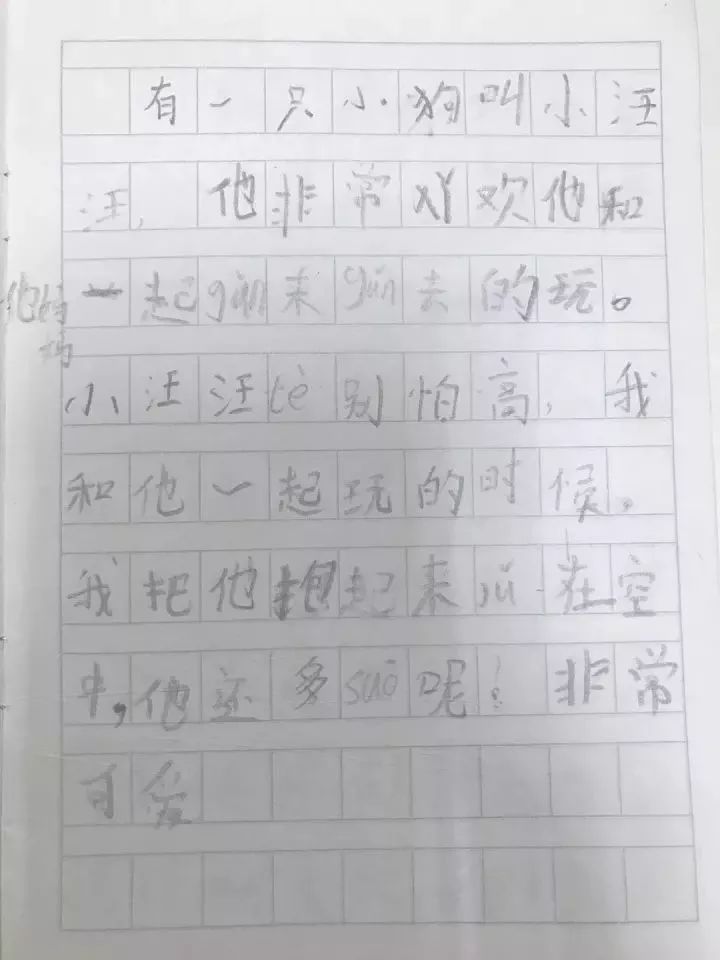 有一只小狗叫小汪
汪,他非常对欢他和
他妈妈一起gǔn来gǔn去的玩。
小汪汪tè别怕高,我
和他一起玩的时候。
我把他抱起来 在空
中,他还多suō呢!非常
可爱